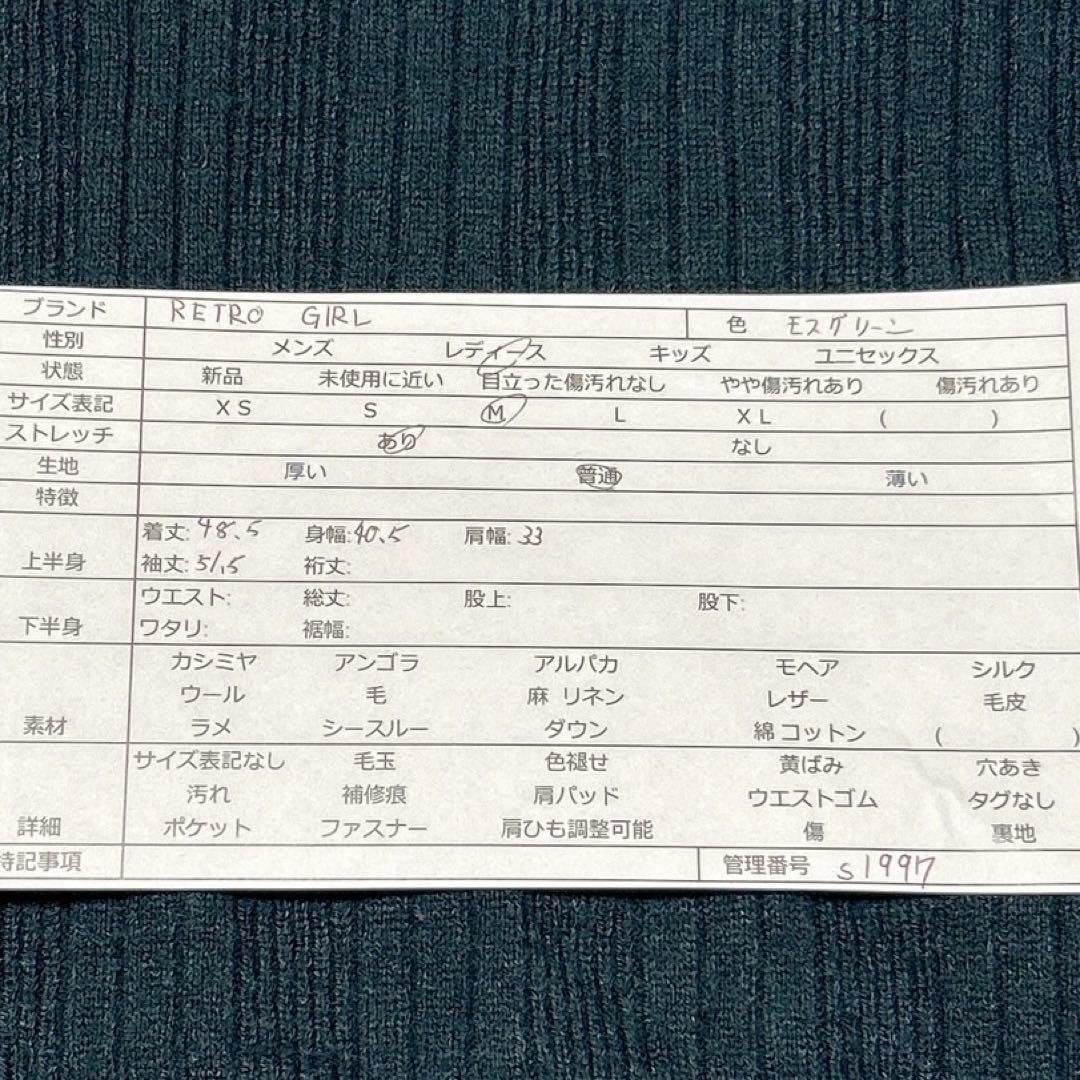 ブランド RETRO GIRL 色 モスグリーン
性別 メンズ レディース キッズ ユニセックス
状態 新品 未使用に近い 目立った傷汚れなし やや傷汚れあり 傷汚れあり
サイズ表記 XS S M L XL ( )
ストレッチ あり なし
生地 厚い 普通 薄い
特徴
上半身 着丈: 48.5 身幅: 40.5 肩幅: 33
袖丈: 51.5 裄丈:
下半身 ウエスト: 総丈: 股上: 股下:
ワタリ: 裾幅:
カシミヤ アンゴラ アルパカ モヘア シルク
ウール 毛 麻 リネン レザー 毛皮
素材 ラメ シースルー ダウン 綿 コットン ( )
サイズ表記なし 毛玉 色褪せ 黄ばみ 穴あき
汚れ 補修痕 肩パッド ウエストゴム タグなし
詳細 ポケット ファスナー 肩ひも調整可能 傷 裏地
特記事項 管理番号 s1997